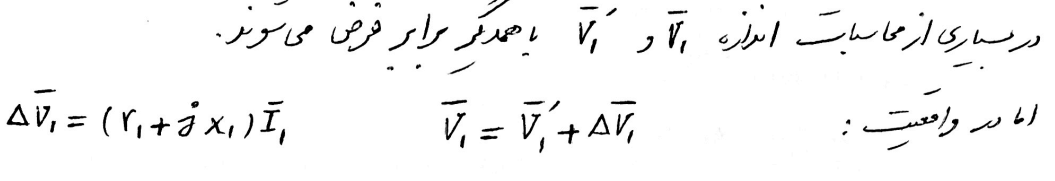 در بسیاری از محاسبات اندازه V̄₁ و V̄₁′ با همدیگر برابر فرض می‌شوند.
اما در واقعیت : V̄₁ = V̄₁′ + ΔV̄₁ ΔV̄₁ = (r₁ + j x₁) Ī₁